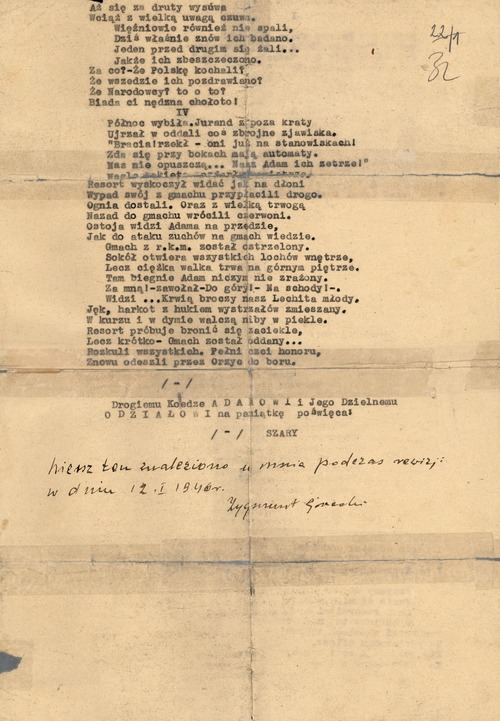 Aż się za druty wysuwa
Wciąż z wielką uwagą czuwa.
Więźniowie również nie spali,
Dziś właśnie znów ich badano.
Jeden przed drugim się żali...
Jakże ich zbeszczeczono.
Za co?-Że Polskę kochali?
Że wszędzie ich pozdrawiano?
Że Narodowcy? to o to?
Biada ci nędzna chołoto!
IV
Północ wybiła.Jurand z poza kraty
Ujrzał w oddali coś zbrojne zjawiska.
"Bracia!rzekł - oni już na stanowiskach!
Zda się przy bokach mają automaty.
Nas nie opuszczą... Nasz Adam ich zetrze!"
Resort wyskoczył widać jak na dłoni
Wypad swój z gmachu przypłacili drogo.
Ognia dostali. Oraz z wielką trwogą
Nazad do gmachu wrócili czerwoni.
Ostoja widzi Adama na przedzie,
Jak do ataku zuchów na gmach wiedzie.
Gmach z r.k.m. został ostrzelony.
Sokół otwiera wszystkich lochów wnętrze,
Lecz ciężka walka trwa na górnym piętrze.
Tam biegnie Adam niczym nie zrażony.
Za mną!-zawołał-Do góry!- Na schody!-.
Widzi ...Krwią broczy nasz Lechita młody.
Jęk, harkot z hukiem wystrzałów zmieszany.
W kurzu i w dymie walczą niby w piekle.
Resort próbuje bronić się zaciekle,
Lecz krótko- Gmach został oddany...
Rozkuli wszystkich. Pełni czci honoru,
Znowu odeszli przez Orzyc do boru.
/-/
Drogiemu Koledze A D A M O W I i Jego Dzielnemu
O D Z I A Ł O W I na pamiątkę poświęca:
/-/ SZARY
22/1
32
wiersz ten znaleziono u mnie podczas rewizji
w dniu 12.I 1946r.
Zygmunt